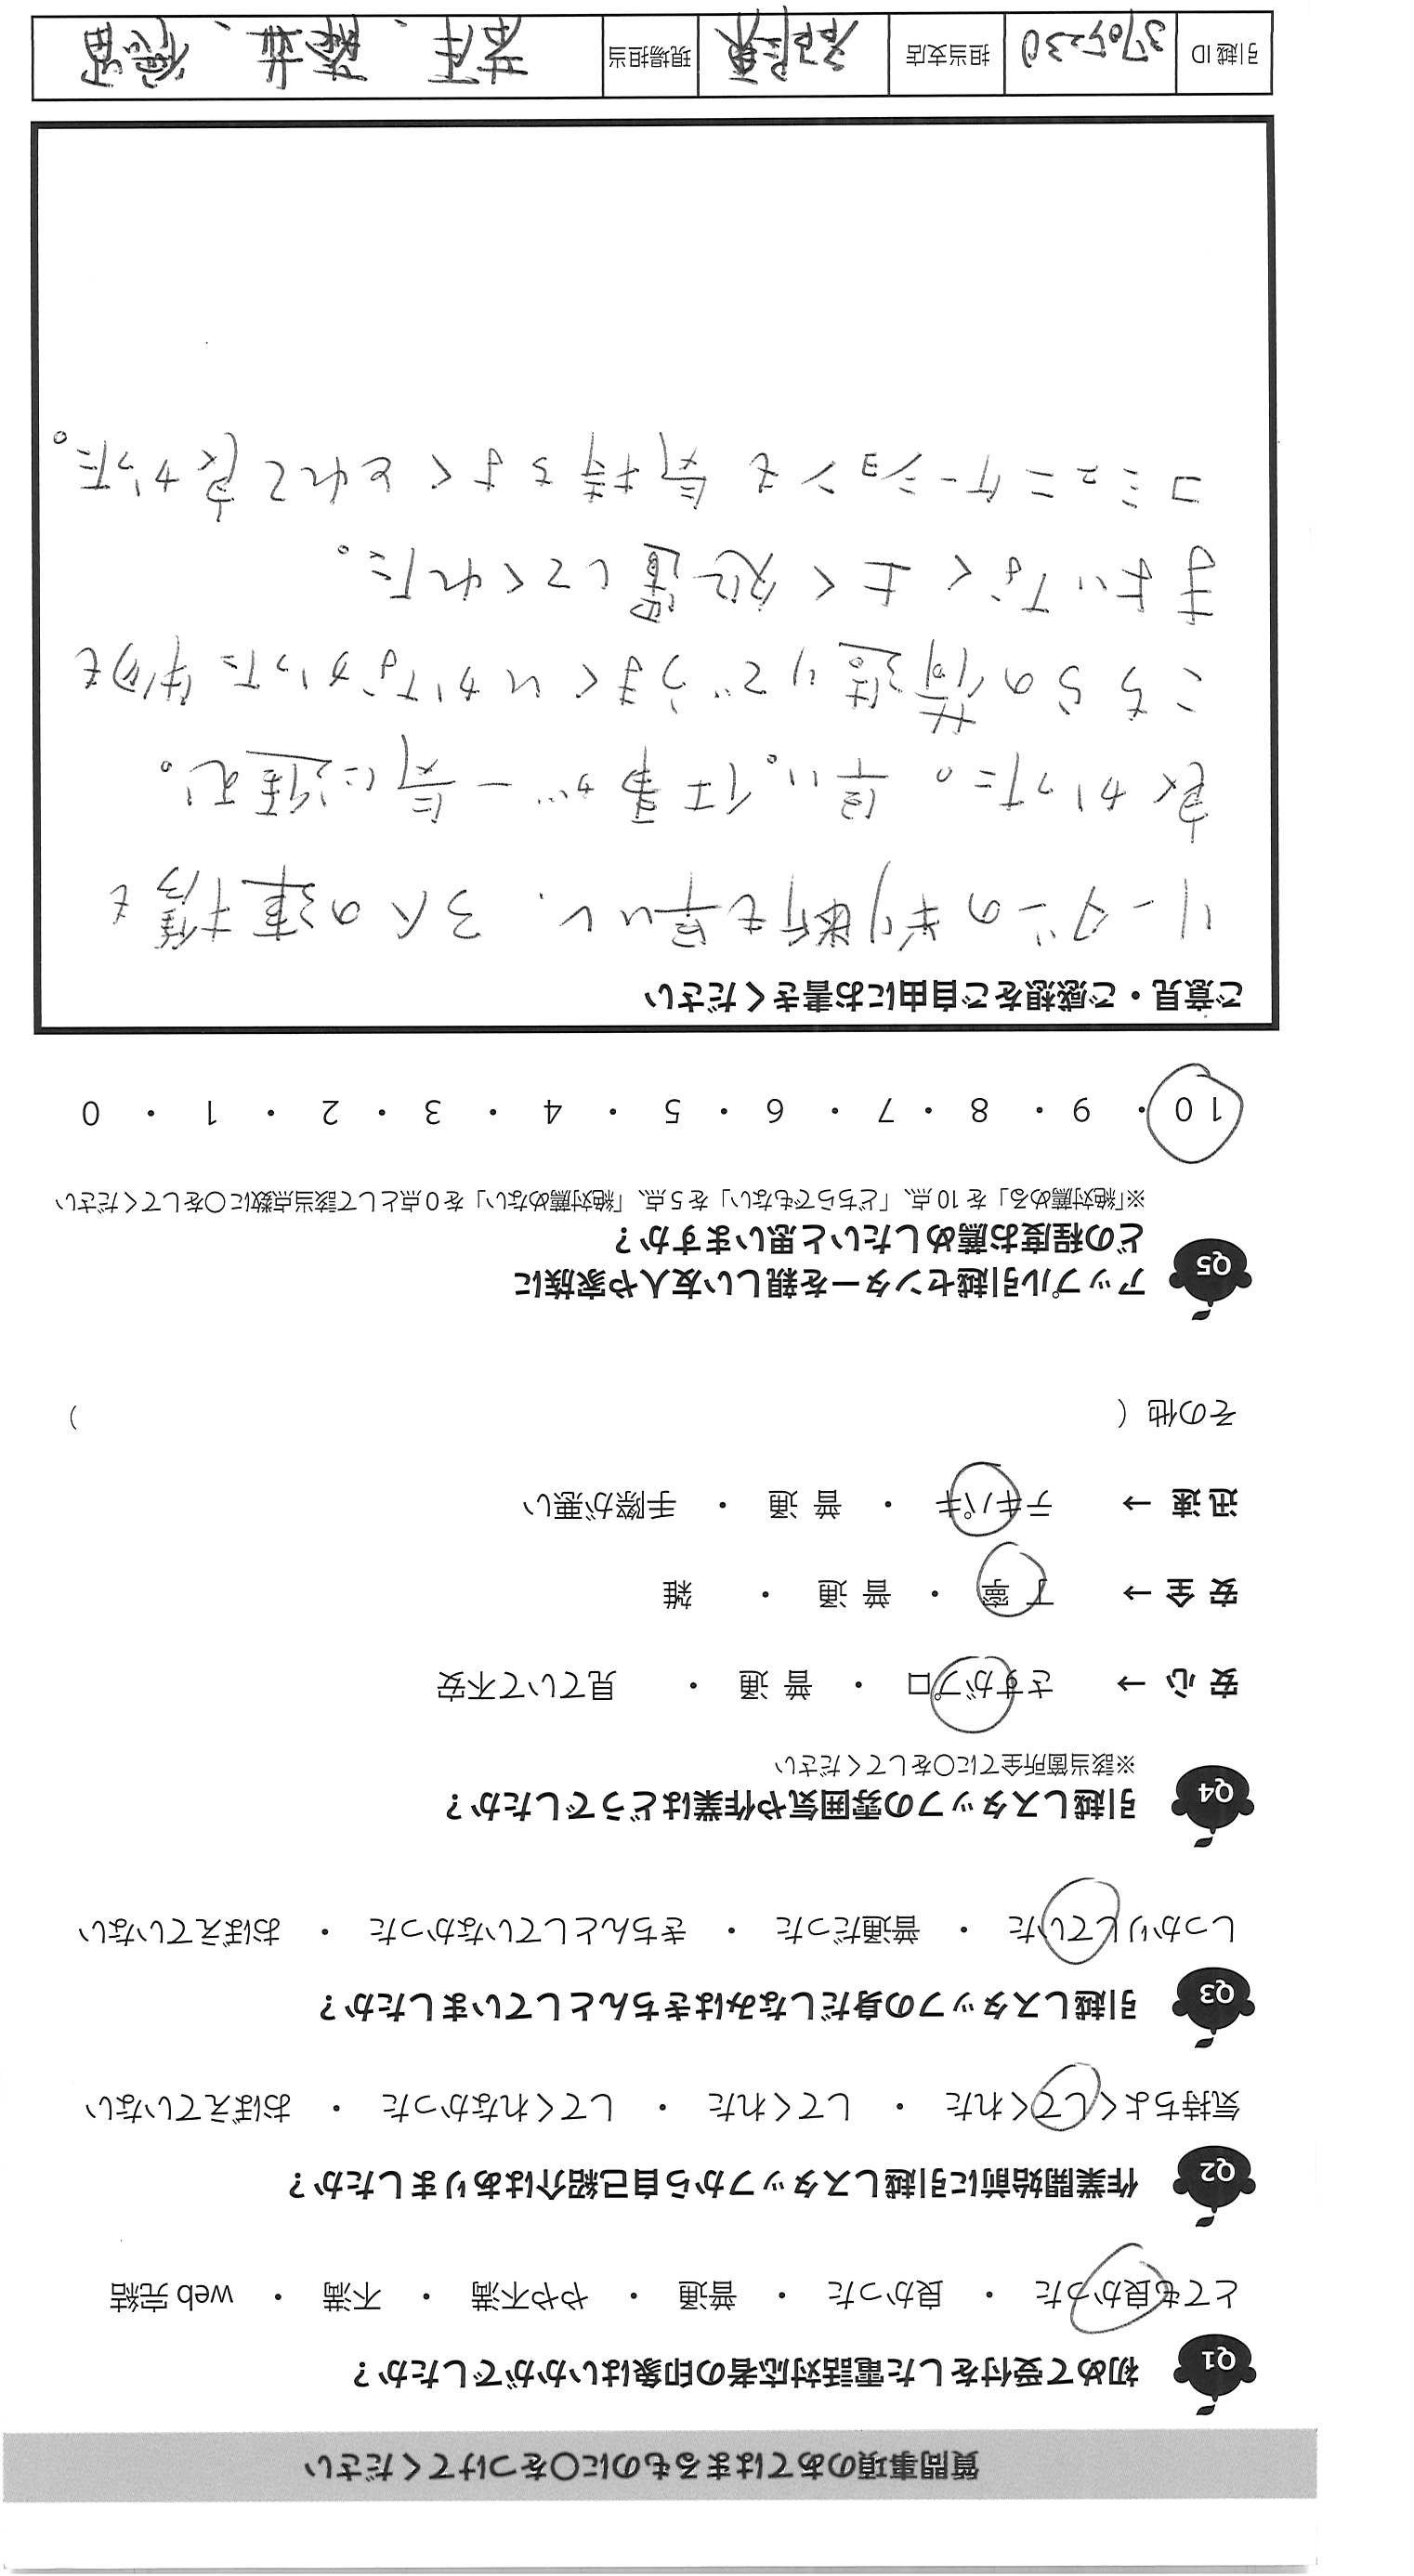 質問事項のあてはまるものに○をつけてください
Q1 初めて受付をした電話対応者の印象はいかがでしたか？
とても良かった ・ 良かった ・ 普通 ・ やや不満 ・ 不満 ・ web 完結
Q2 作業開始前に引越しスタッフから自己紹介はありましたか？
気持ちよくしてくれた ・ してくれた ・ してくれなかった ・ おぼえていない
Q3 引越しスタッフの身だしなみはきちんとしていましたか？
しっかりしていた ・ 普通だった ・ きちんとしていなかった ・ おぼえていない
Q4 引越しスタッフの雰囲気や作業はどうでしたか？
※該当箇所全てに○をしてください
安心 → さすがプロ ・ 普通 ・ 見ていて不安
安全 → 丁寧 ・ 普通 ・ 雑
迅速 → テキパキ ・ 普通 ・ 手際が悪い
その他（ ）
Q5 アップル引越センターを親しい友人や家族に
どの程度お薦めしたいと思いますか？
※「絶対薦める」を10点、「どちらでもない」を5点、「絶対薦めない」を0点として該当点数に○をしてください
10 ・ 9 ・ 8 ・ 7 ・ 6 ・ 5 ・ 4 ・ 3 ・ 2 ・ 1 ・ 0
ご意見・ご感想をご自由にお書きください
リーダーの判断も早いし、3人の連携も
良かった。早い。仕事が一気に進む。
こちらの荷造りでうまくいかなかった物も
まよいなく上く処置してくれた。
コミュニケーションも気持ちよくとれて良かった。
引越ID 3705230 担当支店 名古屋東 現場担当